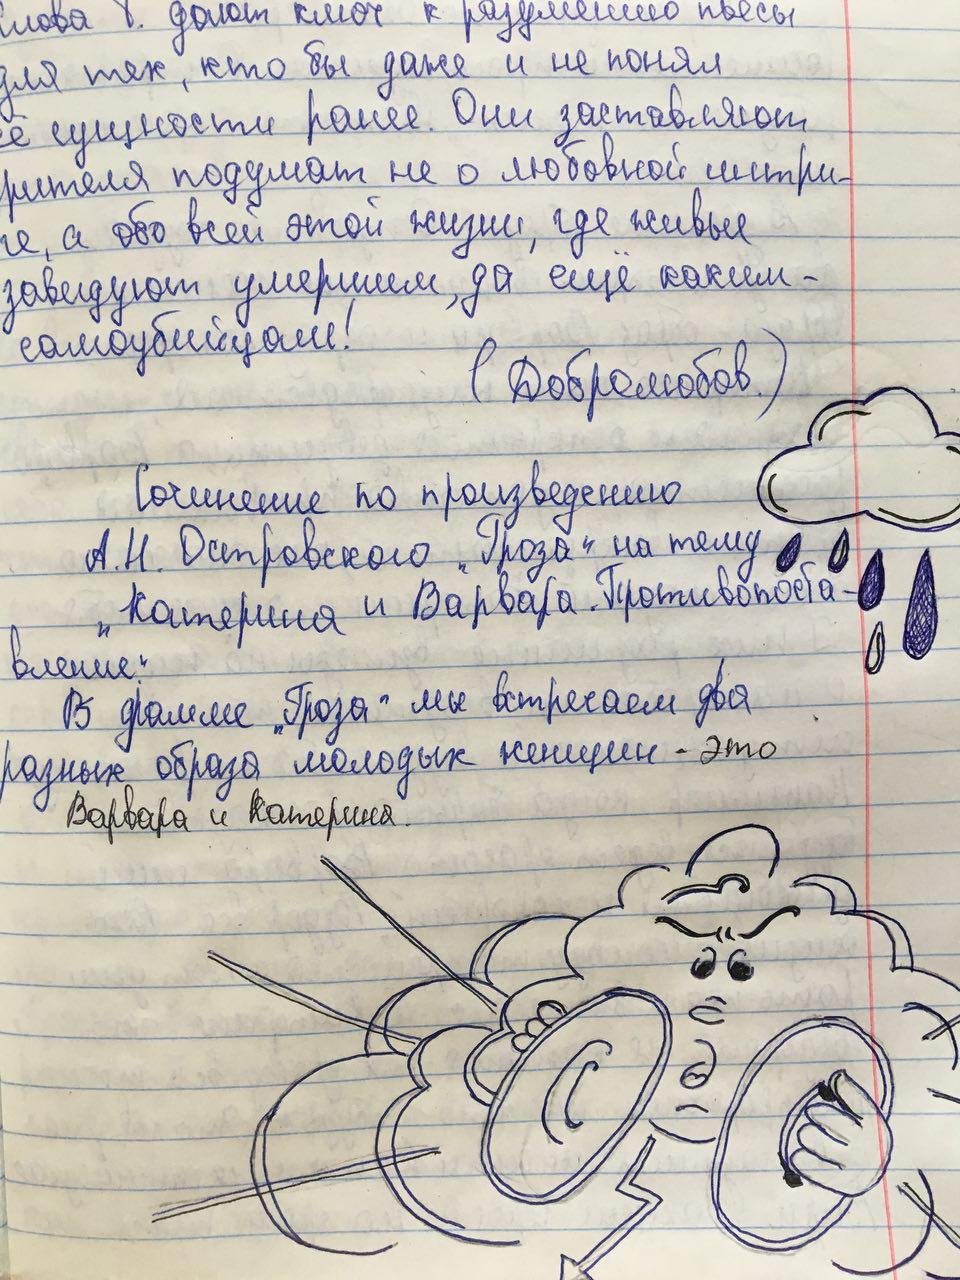 слова Т. дают ключ к разумению пьесы
для тех, кто бы даже и не понял
её сущности ранее. Они заставляют
зрителя подумать не о любовной интри-
ге, а обо всей этой жизни, где живые
завидуют умершим, да ещё каким -
самоубийцам!
(Добролюбов.)
Сочинение по произведению
А.Н. Островского „Гроза“ на тему
„Катерина и Варвара. Противопоста-
вление“.
В драмме „Гроза“ мы встречаем два
разных образа молодых женщин - это
Варвара и Катерина.